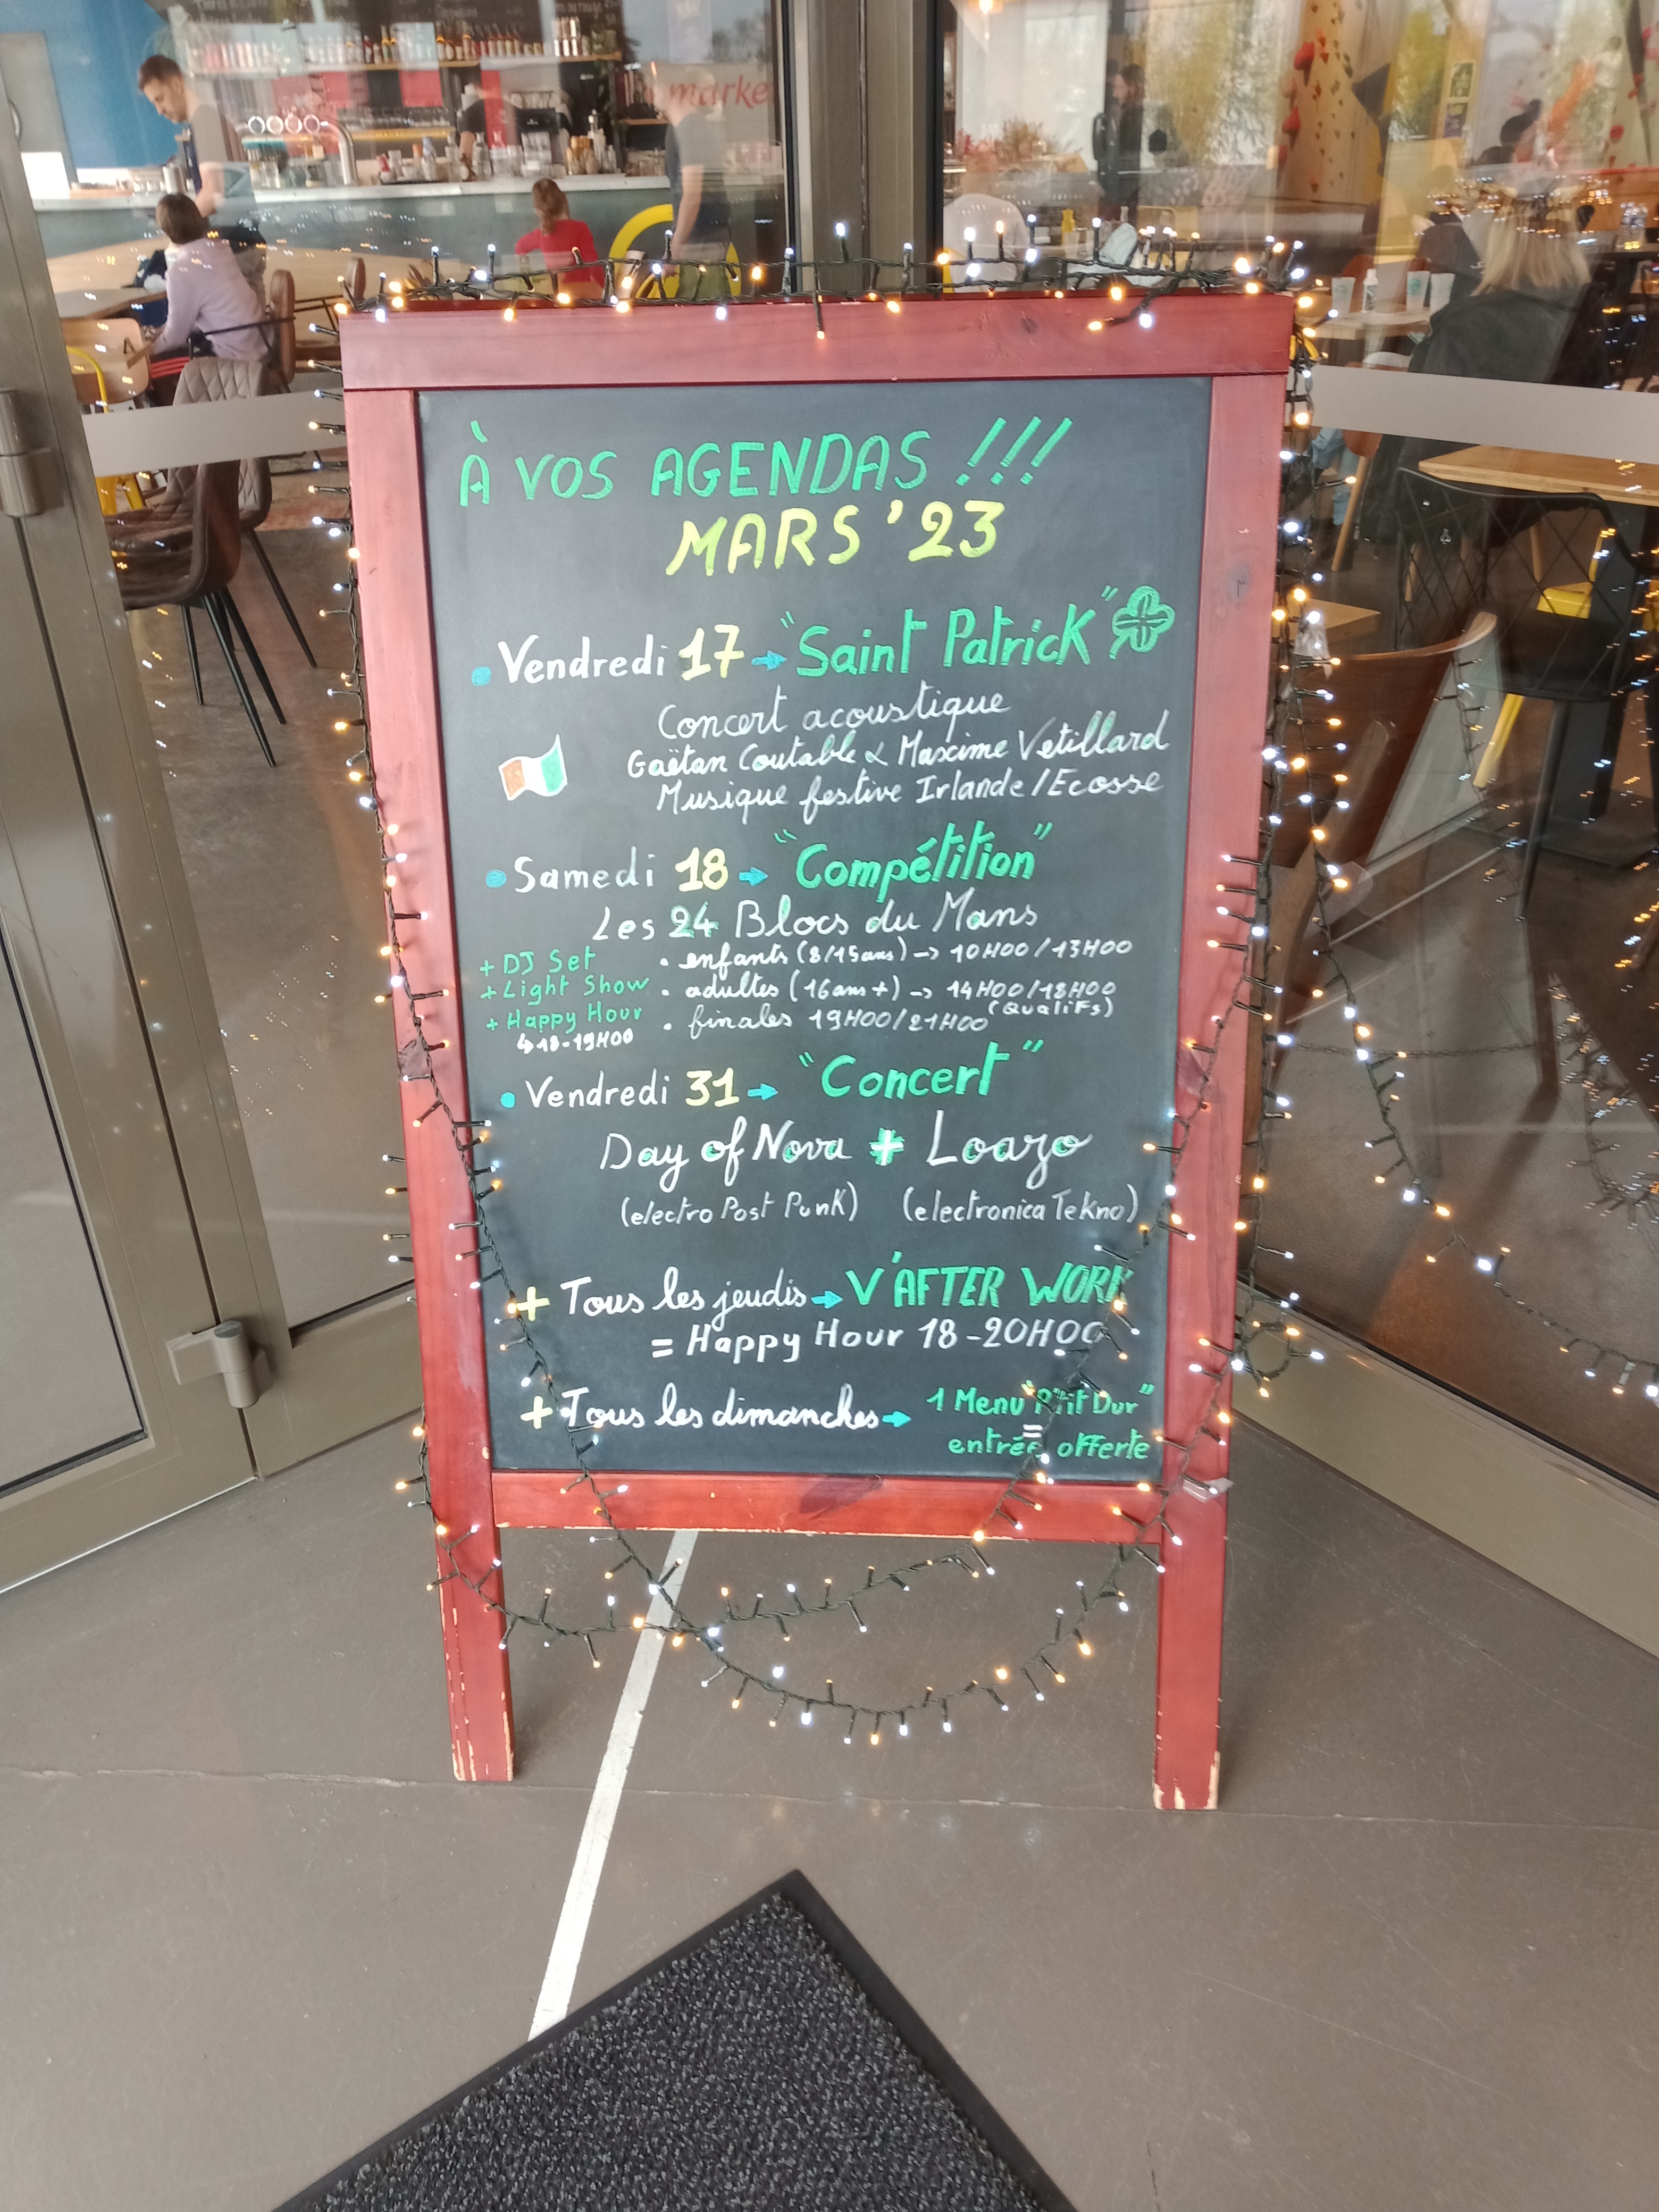 marke
À VOS AGENDAS !!!
MARS '23
• Vendredi 17 → "Saint Patrick"
Concert acoustique
Gaëtan Coutable & Maxime Vetillard
Musique festive Irlande/Ecosse
• Samedi 18 → "Compétition"
Les 24 Blocs du Mans
+ DJ Set • enfants (8/15ans) → 10H00/13H00
+ Light Show • adultes (16ans+) → 14H00/18H00
(QualiFs)
+ Happy Hour • finales 19H00/21H00
↳ 18-19H00
• Vendredi 31 → "Concert"
Day of Nova + Loazo
(electro Post Punk) (electronica Tekno)
+ Tous les jeudis → V'AFTER WORK
= Happy Hour 18-20H00
+ Tous les dimanches → 1 Menu "P'tit Dur"
=
entrée offerte